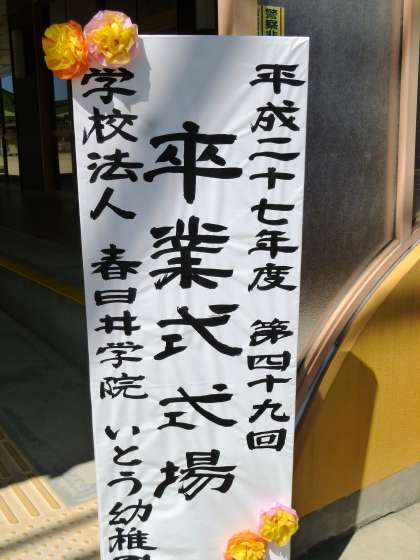 平成二十七年度 第四十九回
卒業式式場
学校法人 春日井学院 いとう幼稚